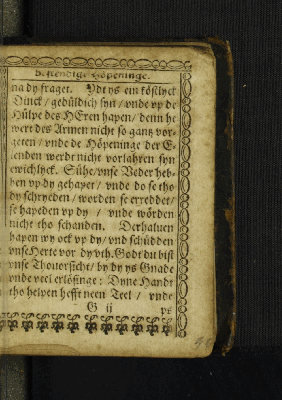 Bestendige Höpeninge.
na dy fraget. Ydt ys ein köstlyck
Dinck / gedüldich syn / vnde vp de
Hülpe des HEren hapen / denn he
wert des Armen nicht so gantz vor-
geten / vnde de Höpeninge der E-
lenden werdt nicht vorlahren syn
ewichlyck. Sühe / vnse Veder heb-
ben vp dy gehapet / vnde do se tho
dy schryeden / worden se erreddet /
se hapeden vp dy / vnde wörden
nicht tho schanden. Derhaluen
hapen wy ock vp dy / vnd schüdden
vnse Herte vor dy vth. Godt du bist
vnse Thouorsicht / by dy ys Gnade
vnde veel erlösinge: Dyne Handt
tho helpen hefft neen Teel / vnde
G ij
ys